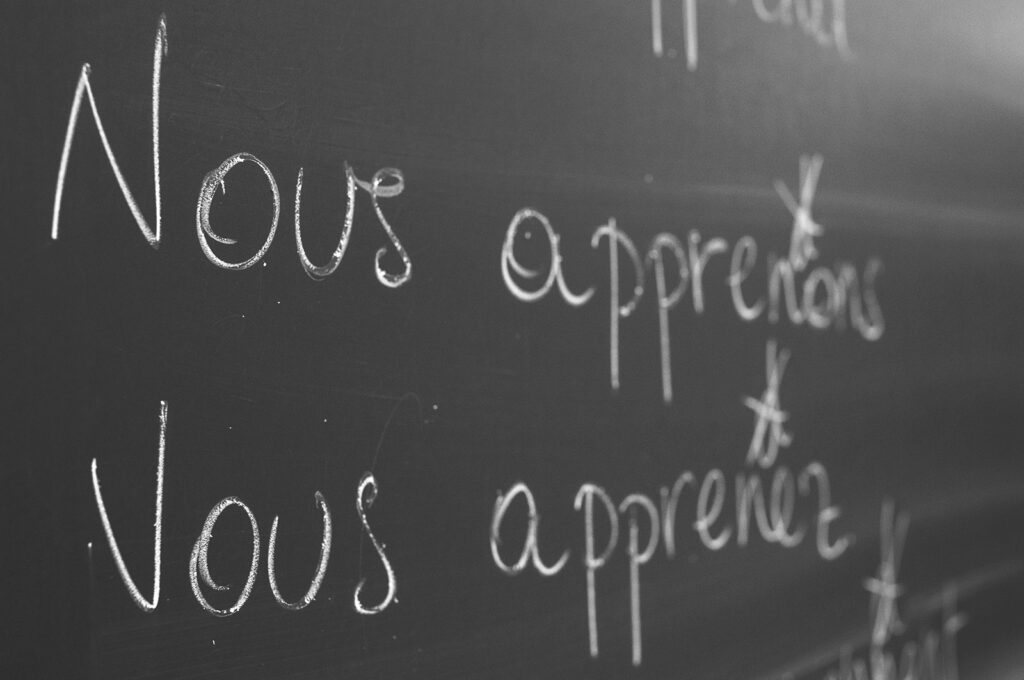 Nous apprenons
Vous apprenez